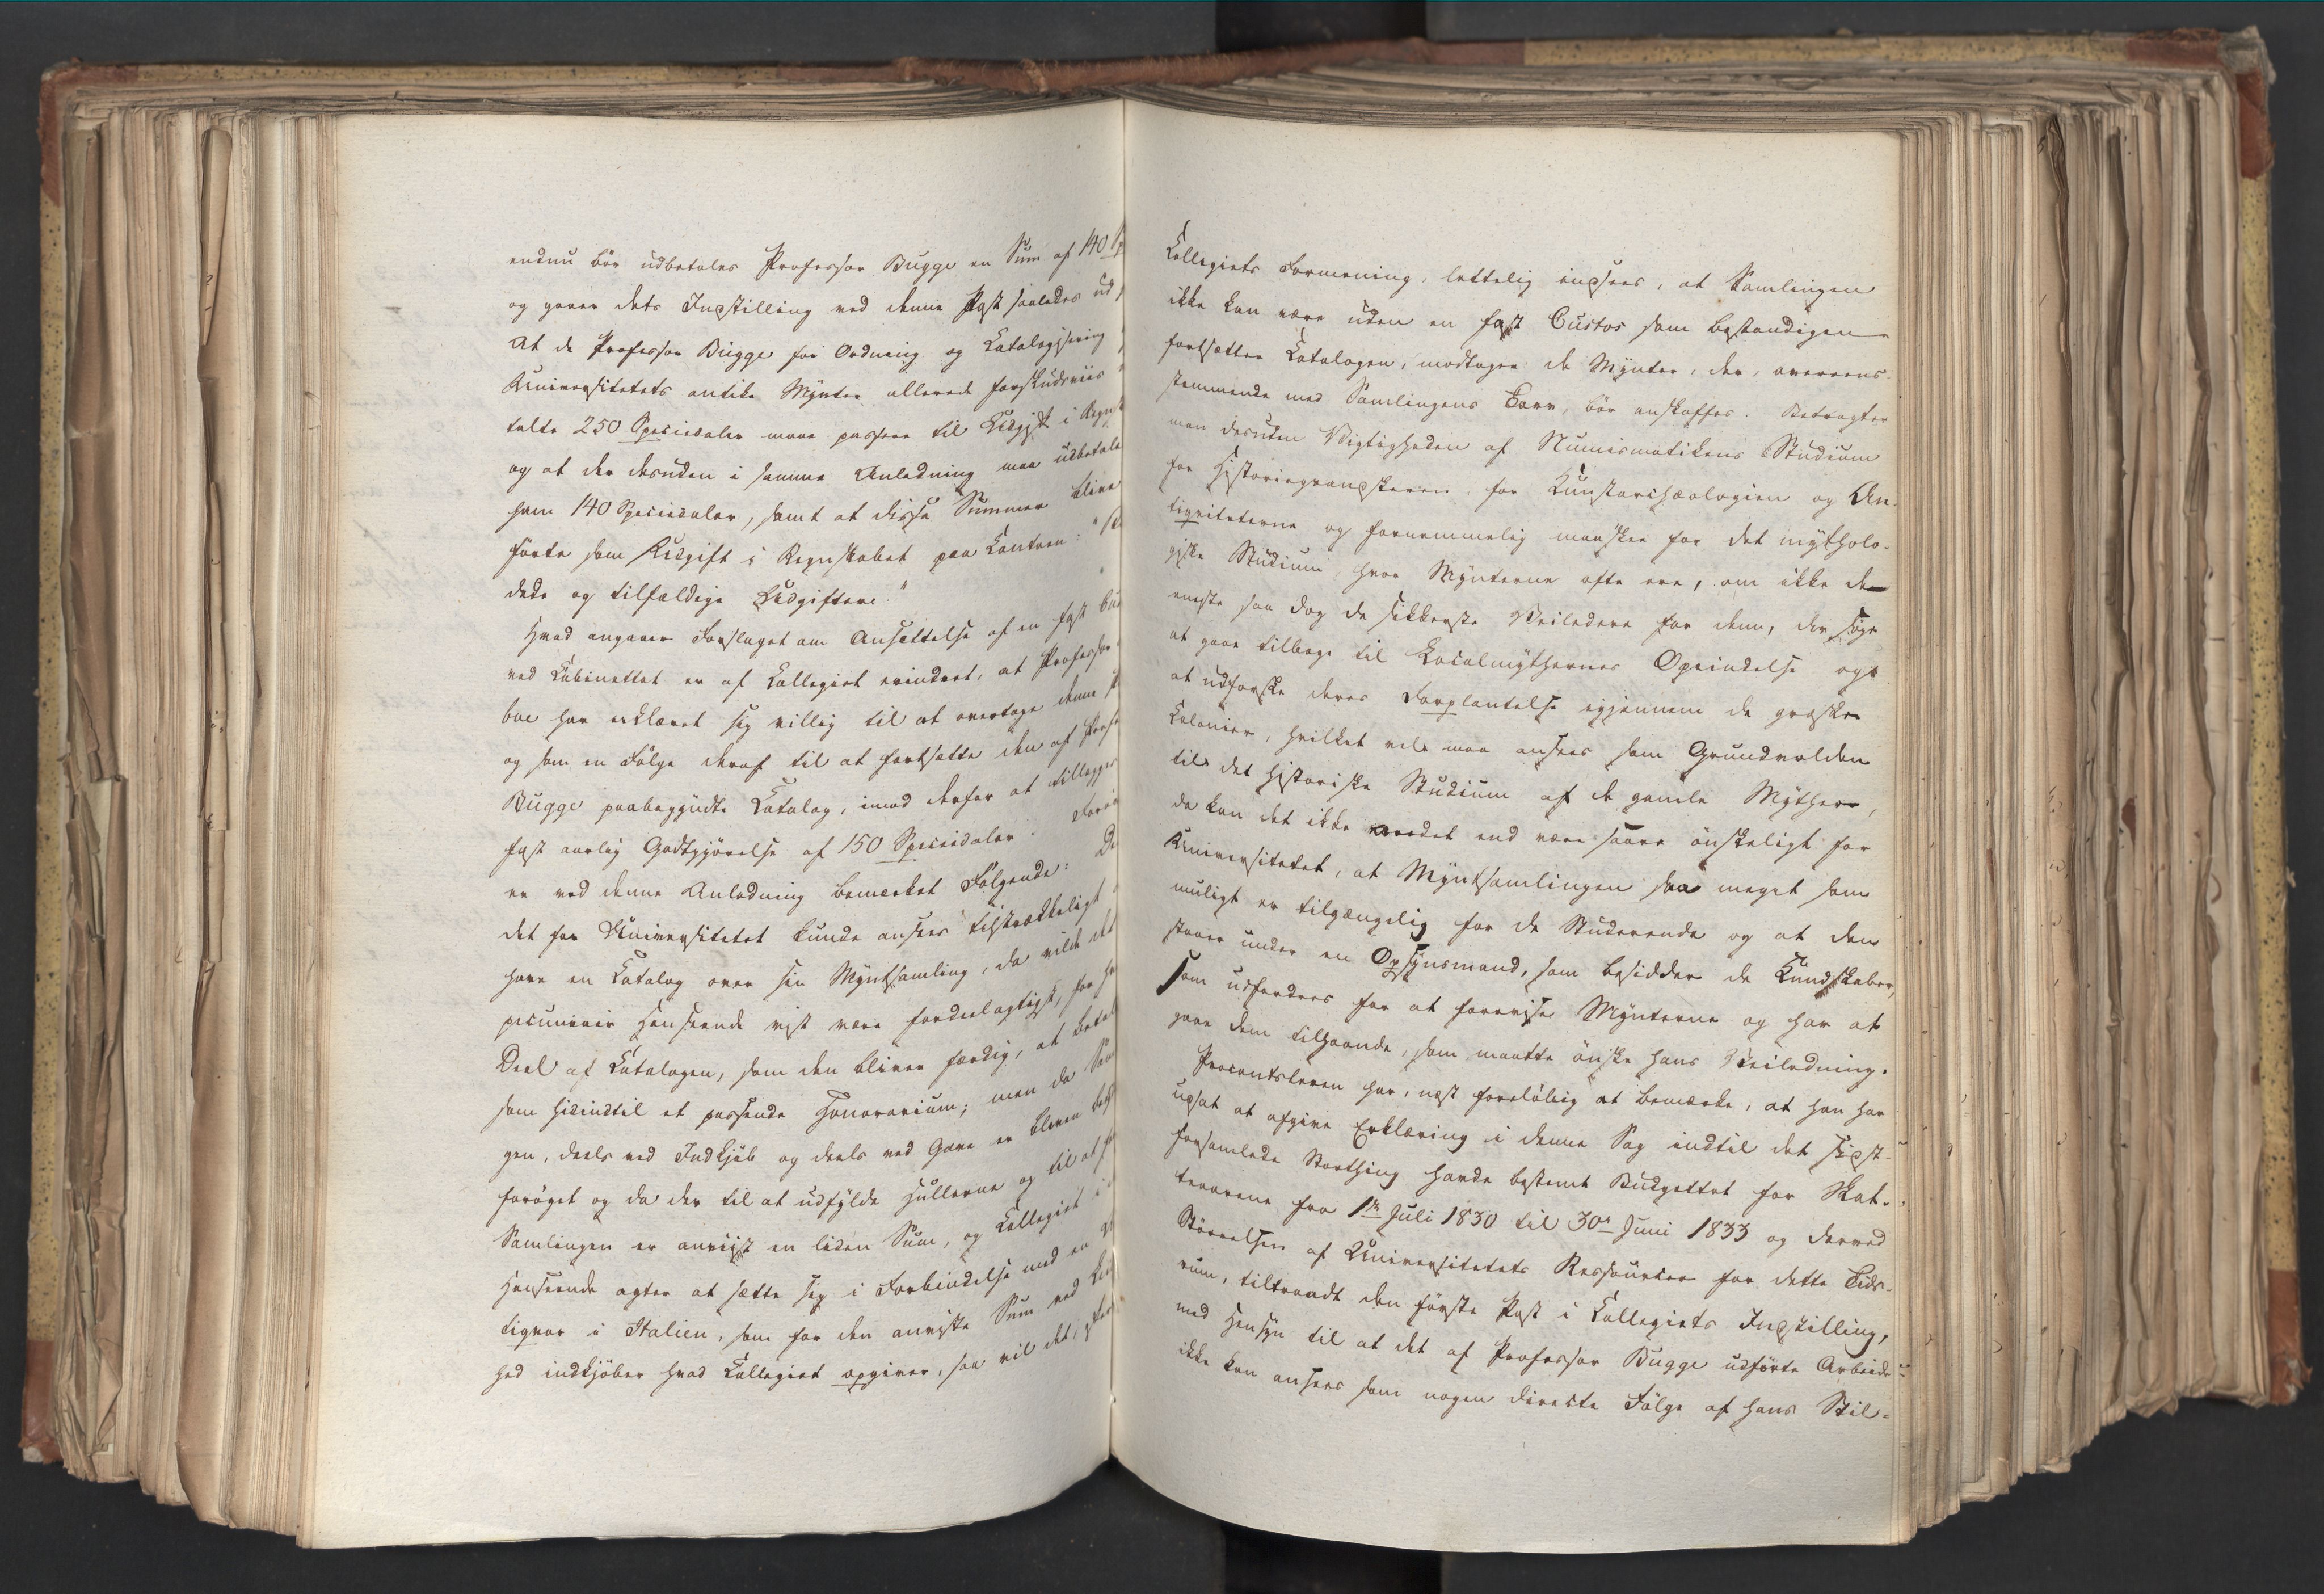 endnu bør udbetales Professor Bugge en Sum af 140 Sp
og gaaer dets Indstilling ved denne Post saaledes ud,
At de Professor Bugge for Ordning og Katalogisering
Universitetets antike Mynter allerede forskudsviis
talte 250 Speciedaler maae passere til Udgift i Regnsk
og at der desuden i samme Anledning maa udbetale
ham 140 Speciedaler, samt at disse Summer blive
førte som Udgift i Regnskabet paa Contoen:
dede og tilfældige Udgifter."
Hvad angaaer Forslaget om Ansættelse af en fast Cus
ved Kabinettet er af Collegiet erindret, at Professor
boe har erklæret sig villig til at overtage denne
og som en Følge deraf til at fortsætte den af Prof
Bugge paabegyndte Katalog, imod derfor at tillægges
fast aarlig Godtgjørelse af 150 Speciedaler.
er ved denne Anledning bemærket Følgende:
det for Universitetet kunde ansees tilstrækkeligt
have en Katalog over sin Myntsamling, da vilde det
pecuniair Henseende vist være fordeelagtigst, for
Deel af Katalogen, som den bliver færdig, at betal
som hidindtil et passende Honorarium; men da Sam
gen, deels ved Indkjøb og deels ved Gave er bleven
forøget og da der til at udfylde Hullerne og til at
Samlingen er anviist en liden Sum, og Collegiet i
Henseende agter at sætte sig i Forbindelse med en
tiqvar i Italien, som for den anviste Sum ved
hed indkjøber hvad Collegiet opgiver, saa vil det, efter
Collegiets Formening, lettelig indsees, at Samlingen
ikke kan være uden en fast Custos som bestandigen
fortsætter Katalogen, modtager de Mynter, der, overeens-
stemmende med Samlingens Tarv, bør anskaffes. Betragter
man desuden Vigtigheden af Numismatikens Studium
for Historiegranskeren, for Kunstarchæologien og An-
tiqviteterne og fornemmelig maaskee for det mytholo-
giske Studium hvor Mynterne ofte ere, om ikke de
eneste saa dog de sikkerste Veiledere for dem, der søge
at gaae tilbage til Localmythernes Oprindelse og
at udforske deres Forplantelse igjennem de græske
Colonier, hvilket vel maa ansees som Grundvolden
til det historiske Studium af de gamle Myther,
da kan det ikke andet end være saare ønskeligt for
Universitetet, at Myntsamlingen saa meget som
muligt er tilgængelig for de Studerende og at den
staaer under en Opsynsmand, som besidder de Kundskaber,
som udfordres for at forevise Mynterne og har at
gaae dem tilhaande, som maatte ønske hans Veiledning.
Procantsleren har, næst foreløbig at bemærke, at han har
udsat at afgive Erklæring i denne Sag indtil det sidst-
forsamlede Storthing havde bestemt Budgettet for Skat-
teaarene fra 1ste Juli 1830 til 30te Juni 1833 og derved
Størrelsen af Universitetets Ressourcer for dette Tids-
rum, tiltraadt den første Post i Collegiets Indstilling,
med Hensyn til at det af Professor Bugge udførte Arbeide
ikke kan ansees som nogen directe Følge af hans Stil-